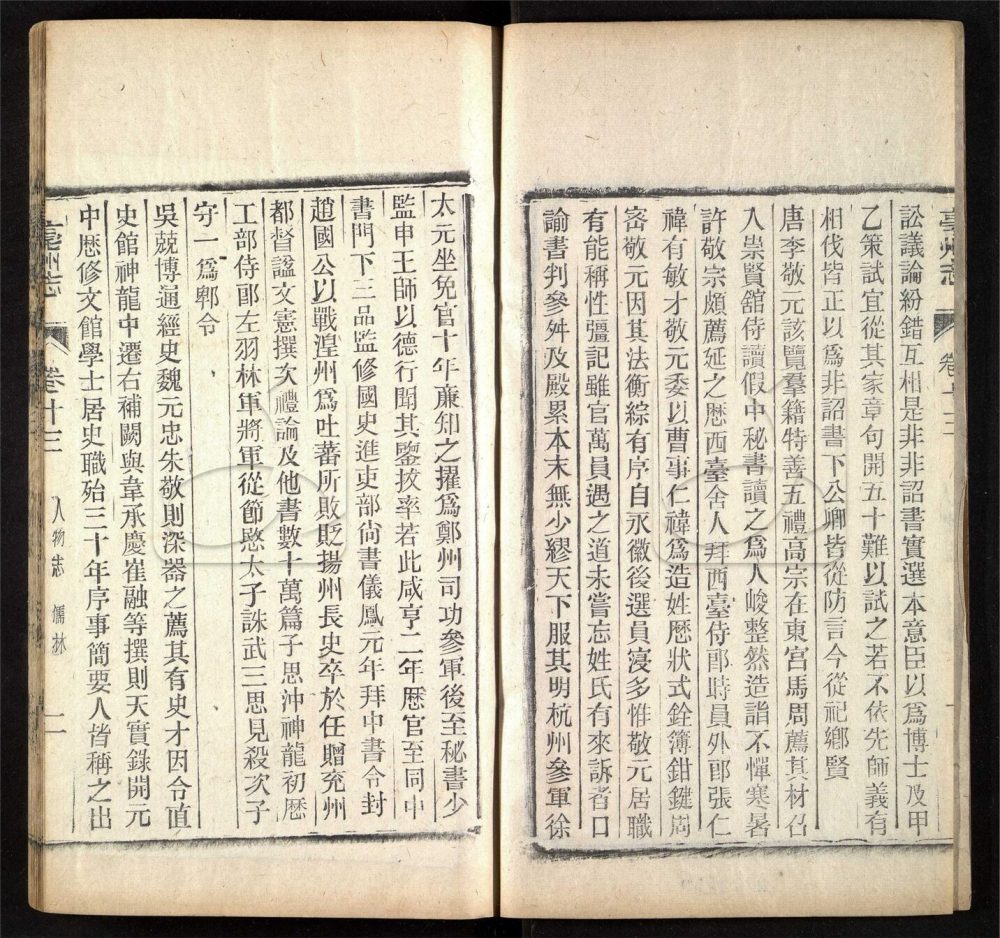 亳州志
卷十三
訟議論紛錯互相是非非詔書實選本意臣以爲博士及甲
乙策試宜從其家章句開五十難以試之若不依先師義有
相伐皆正以爲非詔書下公卿皆從防言今從祀鄉賢
唐李敬元該覽羣籍特善五禮高宗在東宮馬周薦其材召
入崇賢舘侍讀假中秘書讀之爲人峻整然造詣不憚寒暑
許敬宗頗薦延之歷西臺舍人拜西臺侍郎時員外郎張仁
禕有敏才敬元委以曹事仁禕爲造姓歷狀式銓簿鉗鍵周
密敬元因其法衡綜有序自永徽後選員寖多惟敬元居職
有能稱性彊記雖官萬員遇之道未嘗忘姓氏有來訴者口
諭書判參舛及殿累本末無少繆天下服其明杭州參軍徐
太元坐免官十年廉知之擢爲鄭州司功參軍後至秘書少
監申王師以德行聞其鑒拔率若此咸亨二年歷官至同中
書門下三品監修國史進吏部尚書儀鳳元年拜中書令封
趙國公以戰湟州爲吐蕃所敗貶揚州長史卒於任贈兖州
都督諡文憲撰次禮論及他書數十萬篇子思沖神龍初歷
工部侍郎左羽林軍將軍從節愍太子誅武三思見殺次子
守一爲郫令
吳兢博通經史魏元忠朱敬則深器之薦其有史才因令直
史館神龍中遷右補闕與韋承慶崔融等撰則天實錄開元
中歷修文館學士居史職殆三十年序事簡要人皆稱之出
亳州志
卷十三
人物志
儒林
二